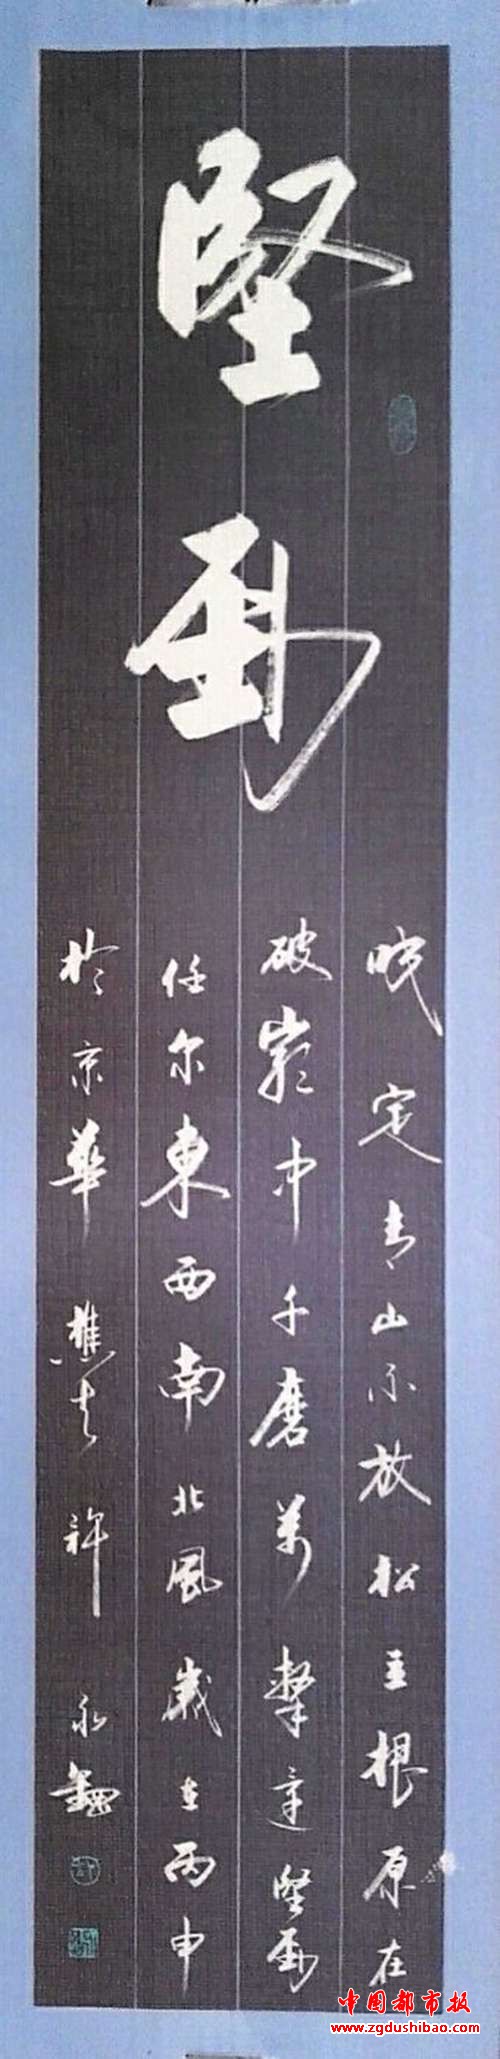 堅勁
咬定青山不放松立根原在
破巖中千磨萬擊還堅勁
任尔東西南北風歲在丙申
於京華樵夫許永
中国都市报
www.zgdushibao.com